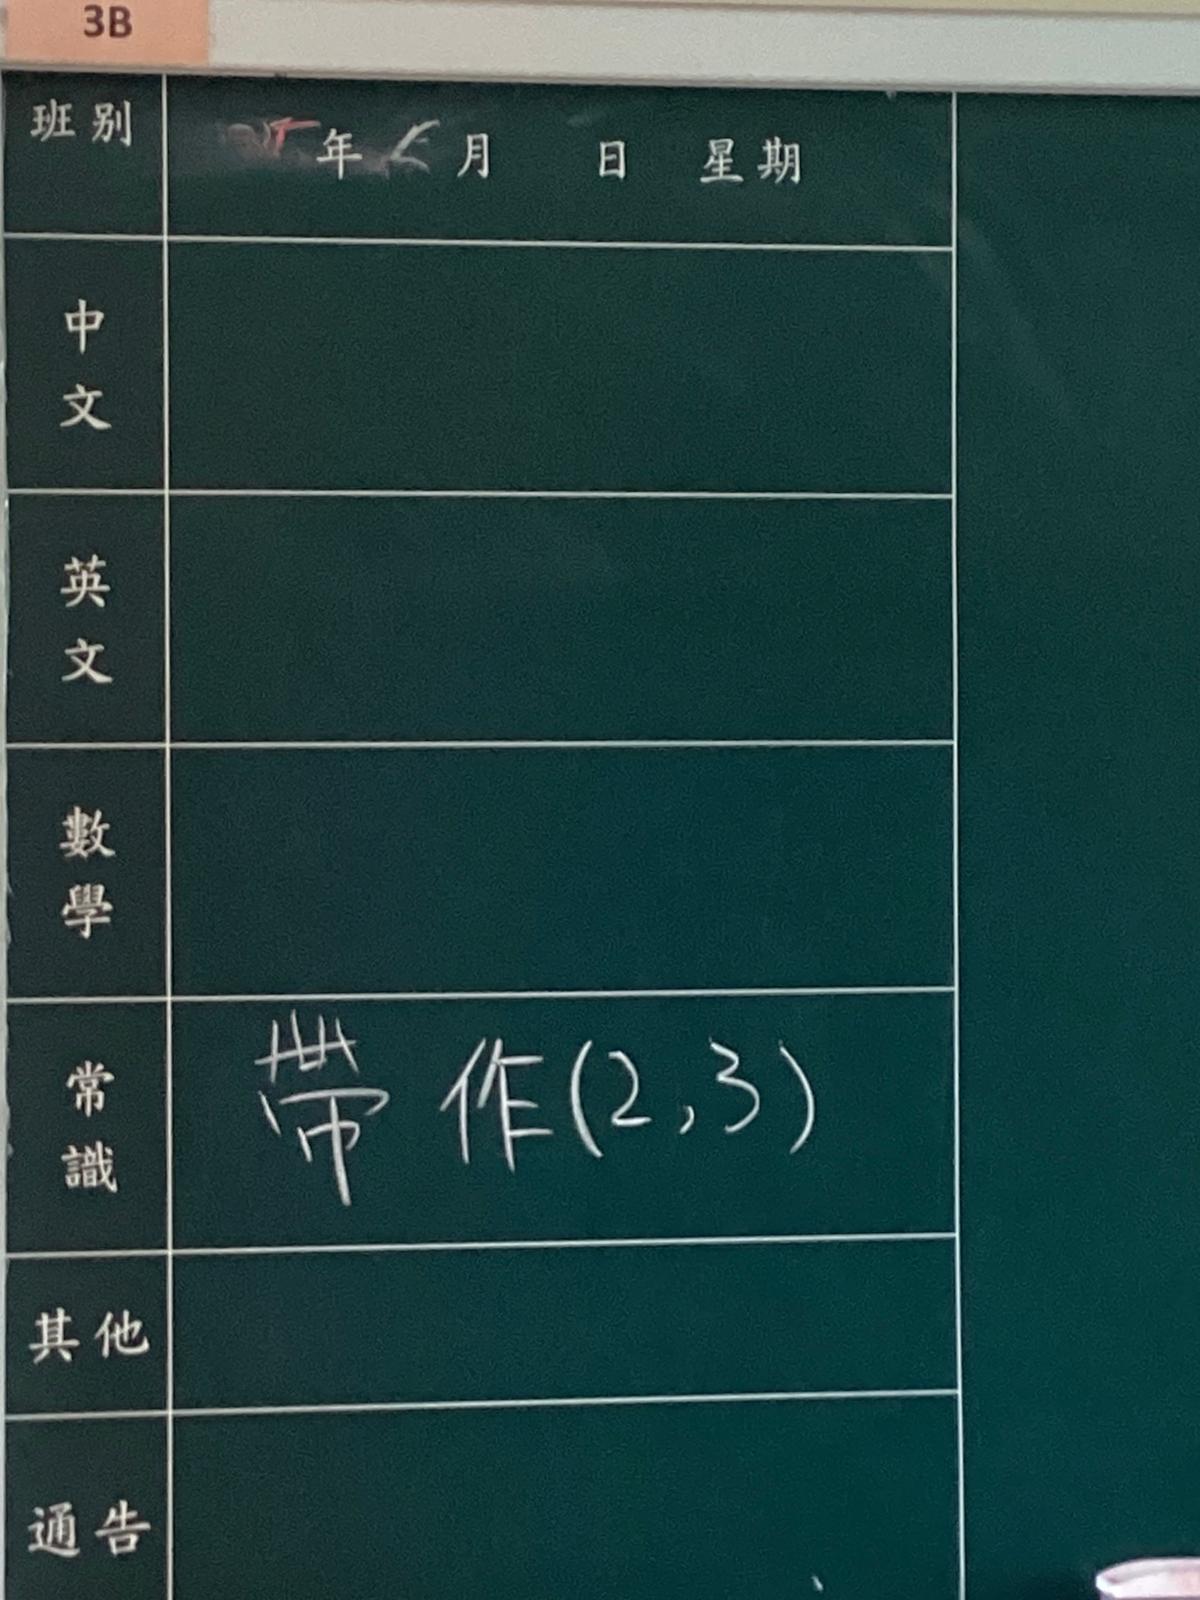 3B
班別
年 月 日 星期
中文
英文
數學
常識
帶 作(2,3)
其他
通告